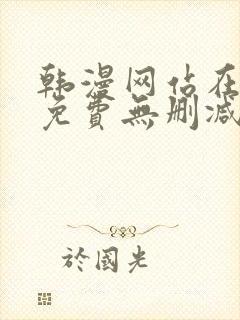 韩漫网站在
免費無删减
於國光